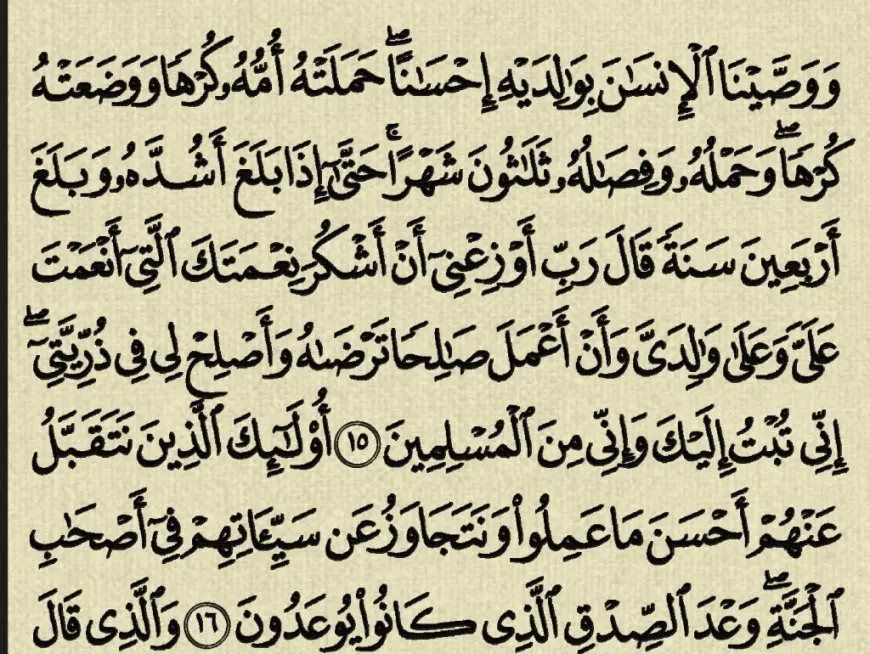 وَوَصَّيْنَا ٱلْإِنسَٰنَ بِوَٰلِدَيْهِ إِحْسَٰنًاۖ حَمَلَتْهُ أُمُّهُۥ كُرْهًا وَوَضَعَتْهُ
كُرْهًاۖ وَحَمْلُهُۥ وَفِصَٰلُهُۥ ثَلَٰثُونَ شَهْرًاۚ حَتَّىٰٓ إِذَا بَلَغَ أَشُدَّهُۥ وَبَلَغَ
أَرْبَعِينَ سَنَةً قَالَ رَبِّ أَوْزِعْنِىٓ أَنْ أَشْكُرَ نِعْمَتَكَ ٱلَّتِىٓ أَنْعَمْتَ
عَلَىَّ وَعَلَىٰ وَٰلِدَىَّ وَأَنْ أَعْمَلَ صَٰلِحًا تَرْضَىٰهُ وَأَصْلِحْ لِى فِى ذُرِّيَّتِىٓۖ
إِنِّى تُبْتُ إِلَيْكَ وَإِنِّى مِنَ ٱلْمُسْلِمِينَ ١٥ أُو۟لَٰٓئِكَ ٱلَّذِينَ نَتَقَبَّلُ
عَنْهُمْ أَحْسَنَ مَا عَمِلُوا۟ وَنَتَجَاوَزُ عَن سَيِّـَٔاتِهِمْ فِىٓ أَصْحَٰبِ
ٱلْجَنَّةِۖ وَعْدَ ٱلصِّدْقِ ٱلَّذِى كَانُوا۟ يُوعَدُونَ ١٦ وَٱلَّذِى قَالَ